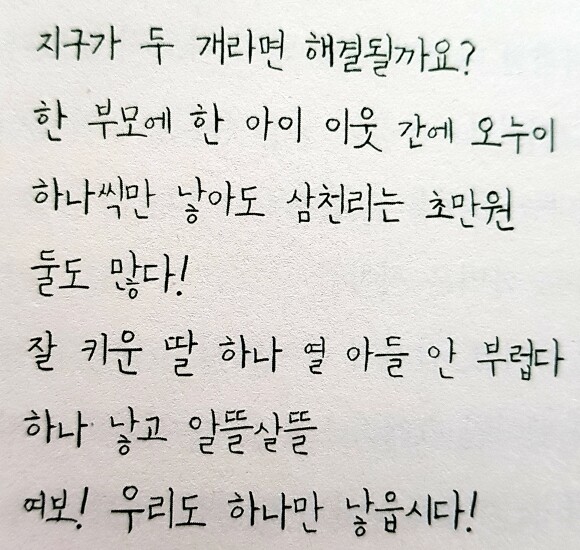 지구가 두 개라면 해결될까요?
한 부모에 한 아이 이웃 간에 오누이
하나씩만 낳아도 삼천리는 초만원
둘도 많다!
잘 키운 딸 하나 열 아들 안 부럽다
하나 낳고 알뜰살뜰
여보! 우리도 하나만 낳읍시다!